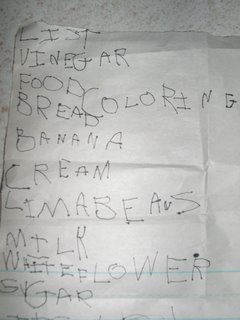 LIST
VINEGAR
FOOD COLORING
BREAD
BANANA
CREAM
LIMABEANS
MILK
WHITEFLOWER
SUGAR